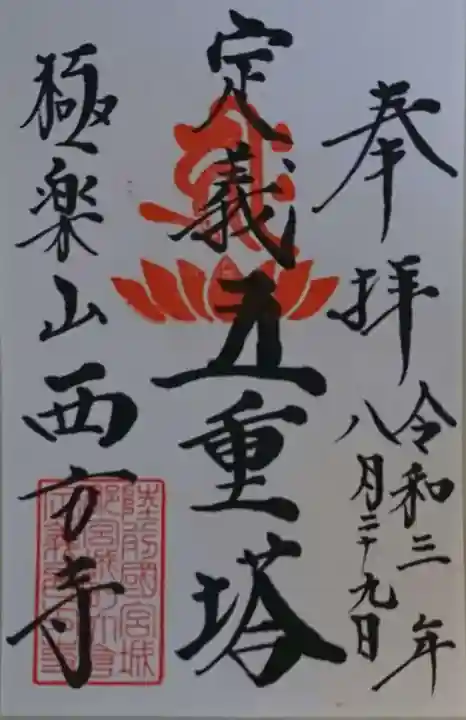 奉拝
令和三年
八月二十九日
定義五重塔
極楽山西方寺
陸前國宮城